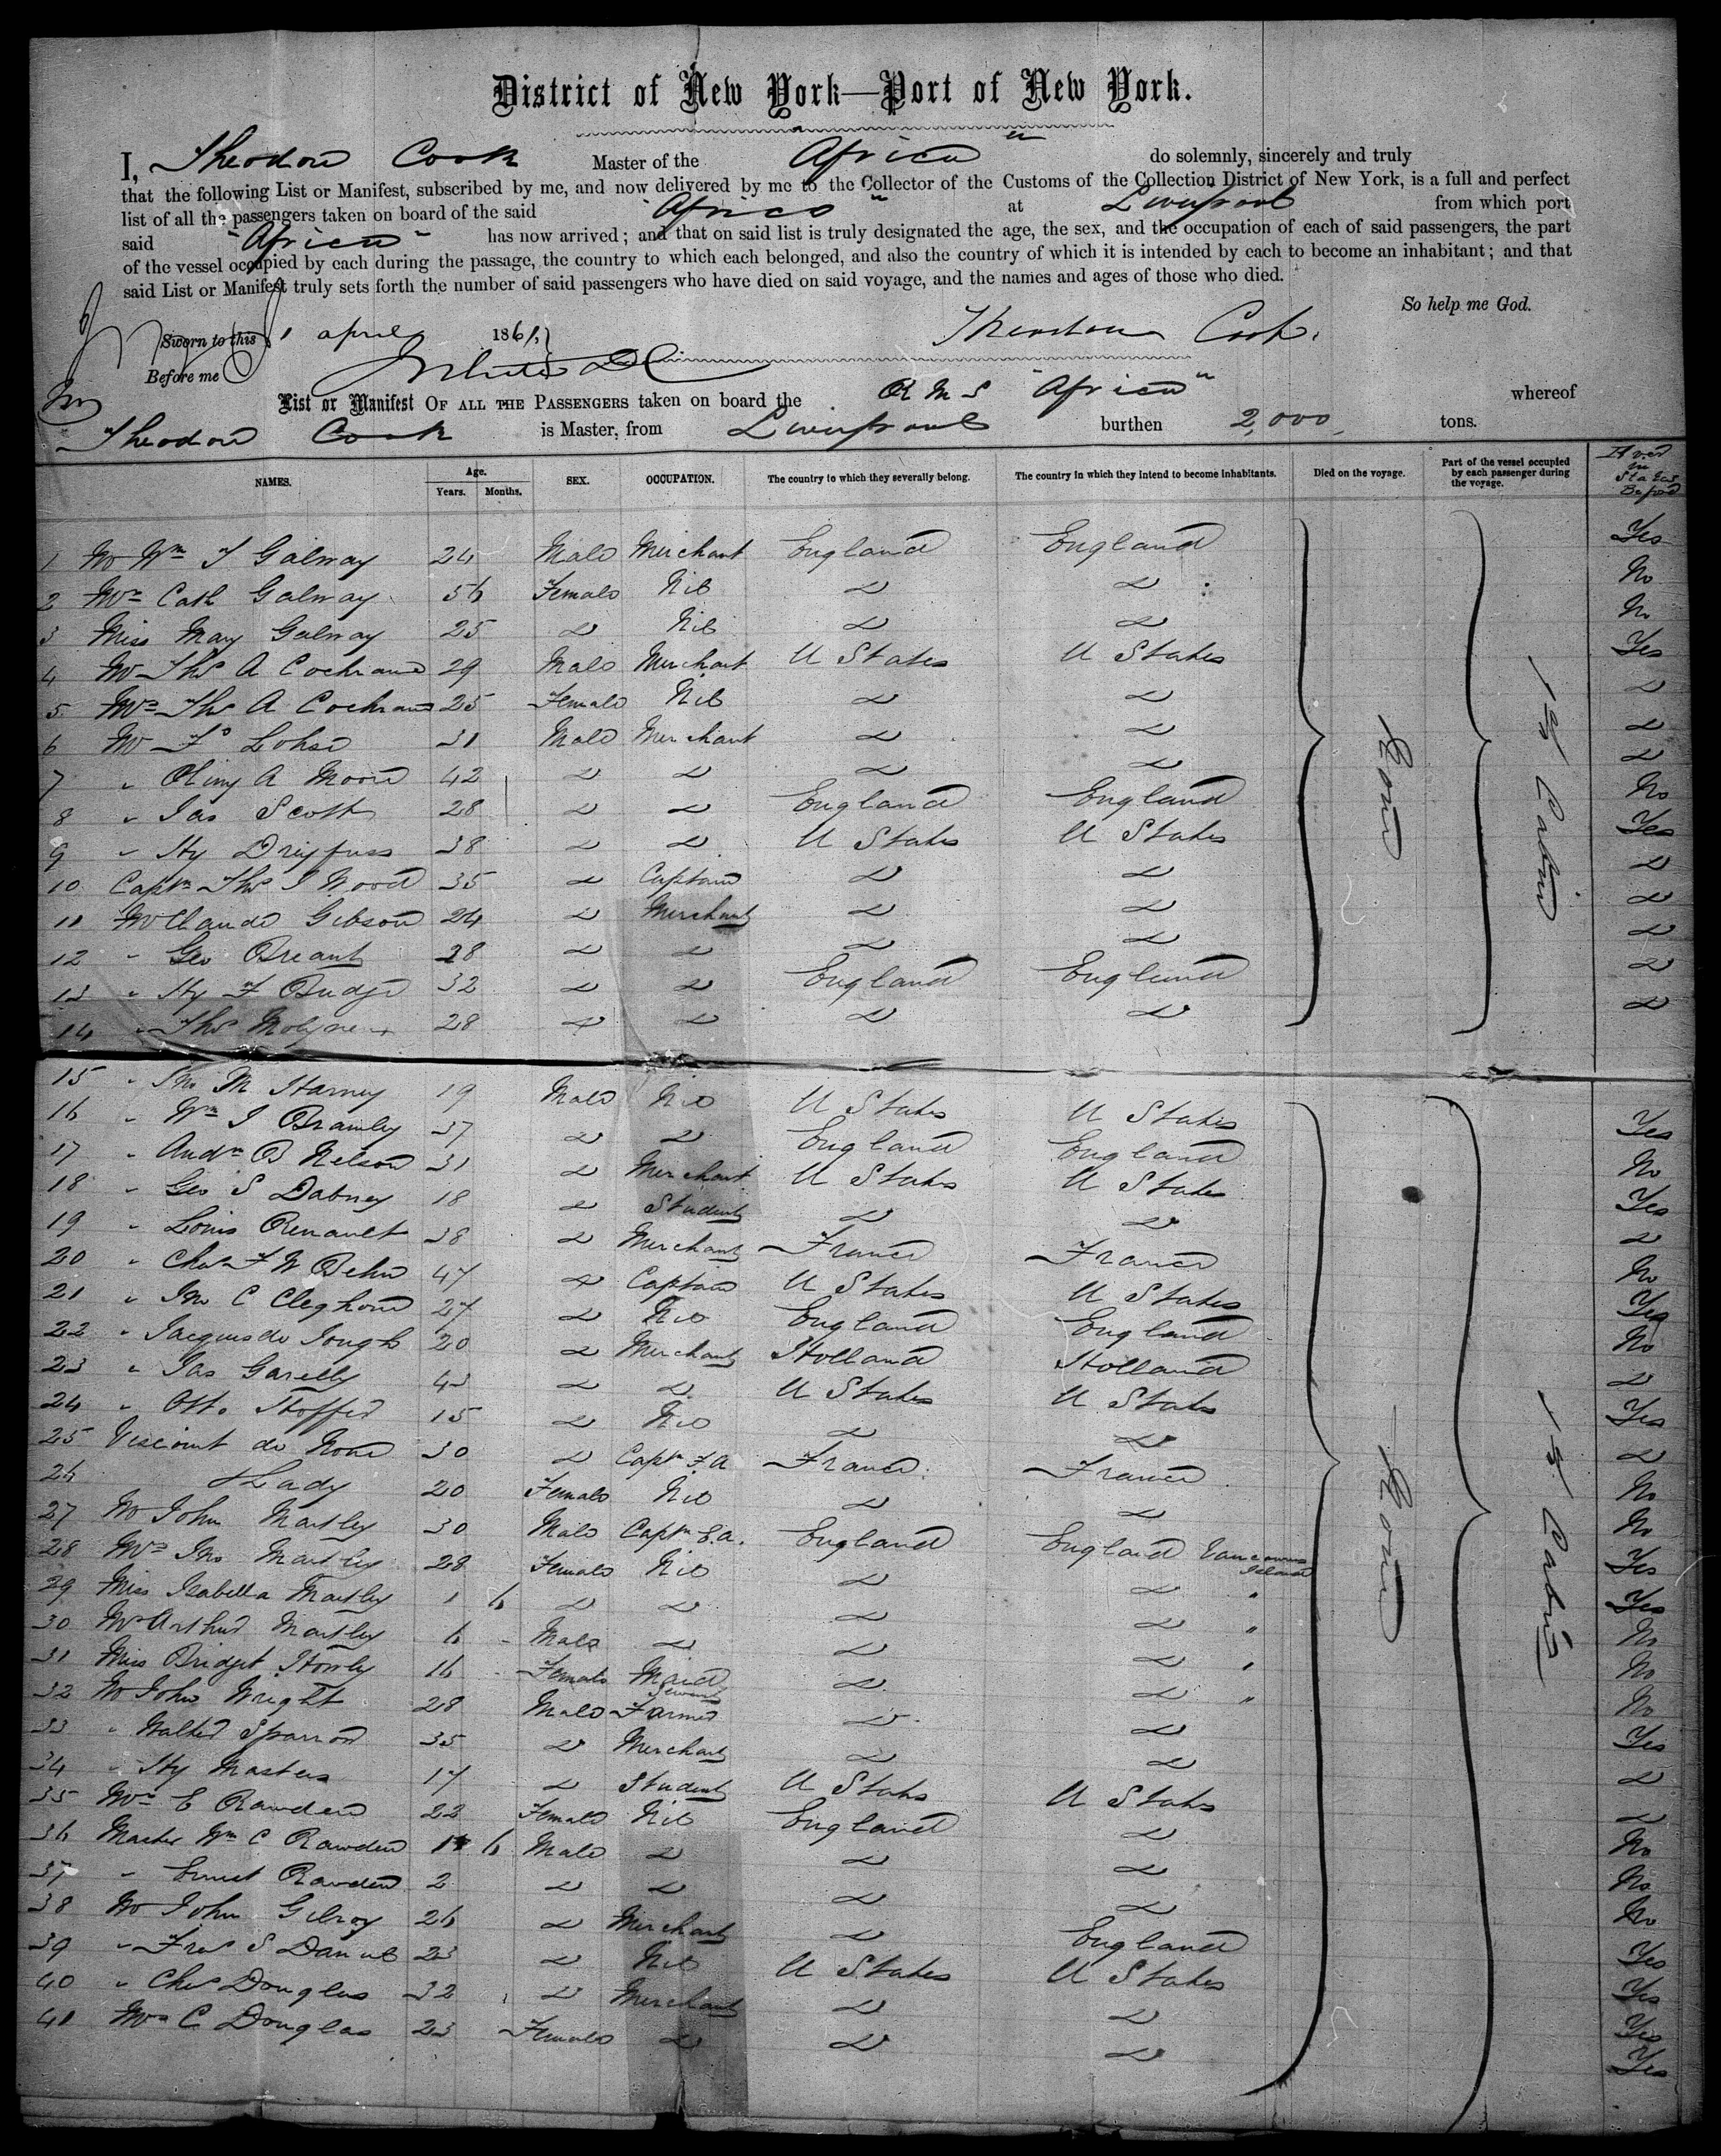 District of New York—Port of New York.
I, Theodore Cook Master of the "Africa" do solemnly, sincerely and truly
that the following List or Manifest, subscribed by me, and now delivered by me to the Collector of the Customs of the Collection District of New York, is a full and perfect
list of all the passengers taken on board of the said "Africa" at Liverpool from which port
said "Africa" has now arrived; and that on said list is truly designated the age, the sex, and the occupation of each of said passengers, the part
of the vessel occupied by each during the passage, the country to which each belonged, and also the country of which it is intended by each to become an inhabitant; and that
said List or Manifest truly sets forth the number of said passengers who have died on said voyage, and the names and ages of those who died.
So help me God.
Sworn to this 1 April 1861, Theodore Cook.
Before me
List or Manifest OF ALL THE PASSENGERS taken on board the R M S "Africa" whereof
Theodore Cook is Master, from Liverpool burthen 2,000 tons.
NAMES. Age. Years. Months. SEX. OCCUPATION. The country to which they severally belong. The country in which they intend to become inhabitants. Died on the voyage. Part of the vessel occupied by each passenger during the voyage. If ved in States Before
1 Mr Wm J Galway 24 Male Merchant England England Yes
2 Mrs Cath Galway 56 Female Nil " " No
3 Miss Mary Galway 25 " Nil " " No
4 Mr Thos A Cochrane 29 Male Merchant U States U States Yes
5 Mrs Thos A Cochrane 25 Female Nil " " "
6 Mr Lohse 31 Male Merchant " " "
7 " A Moore 42 " " " " "
8 " Jas Scott 28 " " England England No
9 " Hy Dreyfuss 38 " " U States U States Yes
10 Captn Thos J Wood 35 " Captain " " "
11 Mr Claude Gibson 24 " Merchant " " "
12 " Geo Breant 28 " " " " "
13 " Hy F Budge 32 " " England England "
14 " Thos Molyneux 28 " " " " "
None
1st Cabin
15 " Jno M Harney 19 Male Nil U States U States Yes
16 " Wm J Bramley 37 " " England England No
17 " Andw B Nelson 31 " Merchant U States U States Yes
18 " Geo S Dabney 18 " Student " " "
19 " Louis Renault 38 " Merchant France France No
20 " Chas F W Behn 47 " Captain U States U States Yes
21 " Jno C Cleghorn 27 " Nil England England No
22 " Jacques de Jongh 20 " Merchant Holland Holland "
23 " Jas Garelly 43 " " U States U States Yes
24 " Otto 15 " Nil " " "
25 Viscount de 30 " Captn F.A France France No
26 & Lady 20 Female Nil " " No
27 Mr John Martley 30 Male Captn E.A. England England Vancouvers Island Yes
28 Mrs Jno Martley 28 Female Nil " " " Yes
29 Miss Isabella Martley 1 6 " " " " " No
30 Mr Arthur Martley 6 - Male " " " " No
31 Miss Bridget 16 - Female Maid Servant " " " No
32 Mr John Wright 28 Male Farmer " " Yes
33 " Walter Sparrow 35 " Merchant " " "
34 " Hy Masters 17 " Student U States U States "
35 Mrs E Rawden 22 Female Nil England " No
36 Master Wm C Rawden 6 Male " " " No
37 " Ernest Rawden 2 " " " " No
38 Mr John Gilroy 26 " Merchant " England Yes
39 " S 23 " Nil U States U States Yes
40 " Chas Douglas 32 " Merchant " " Yes
41 Mrs C Douglas 23 Female " " " Yes
None
1st Cabin